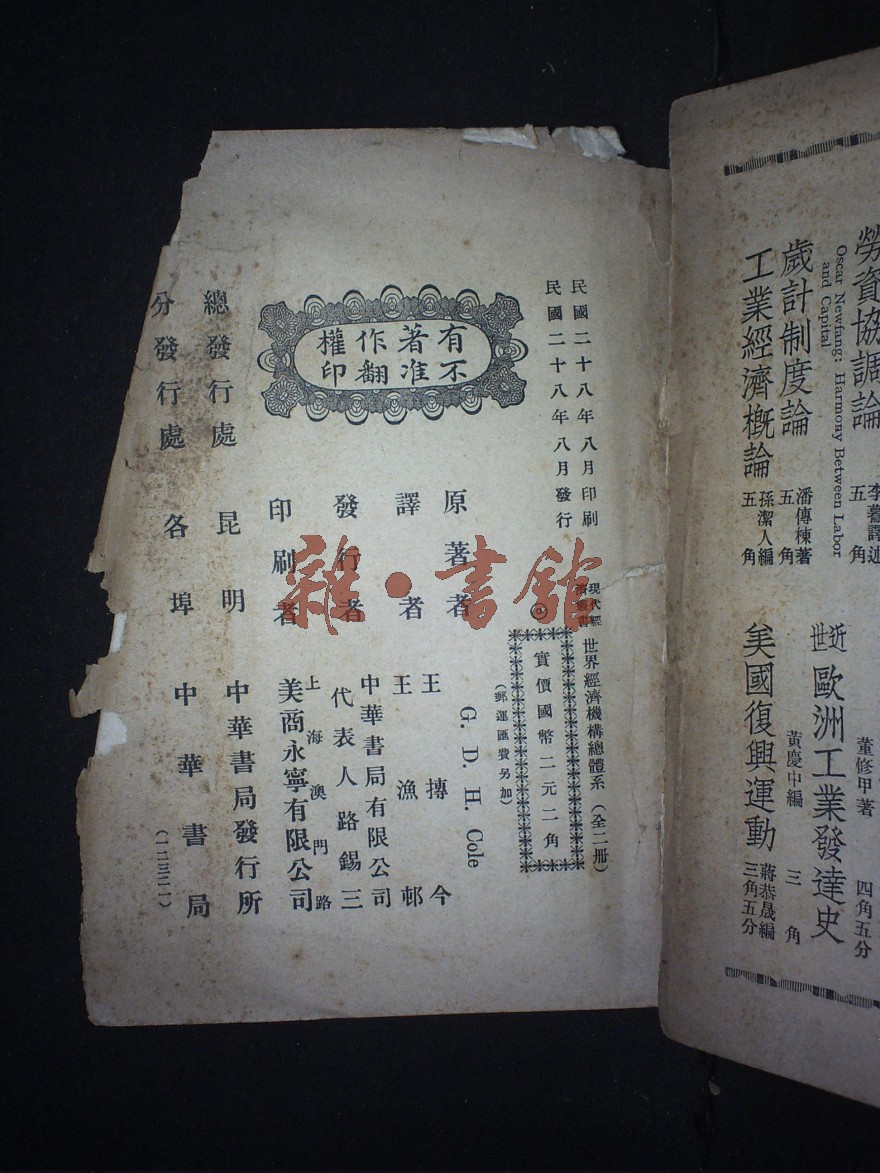 勞資協調論
Oscar Newfang: Harmony Between Labor
and Capital
五角
董修甲著
四角五分
歲計制度論
潘傳棟著
五角
近世歐洲工業發達史
黃慶中編
三角
工業經濟概論
孫潔人編
五角
美國復興運動
蔣恭晟編
三角五分
民國二十八年八月印刷
民國二十八年八月發行
有著作權
不准翻印
現代經濟叢書
世界經濟機構總體系（全二冊）
◎實價國幣二元二角
（郵運匯費另加）
原著者 G. D. H. Cole
譯者 王摶今
王漁邨
發行者 中華書局有限公司
代表人路錫三
印刷者 上海澳門路
美商永寧有限公司
總發行處 昆明 中華書局發行所
分發行處 各埠 中華書局
（一二三二一）
雜·書館